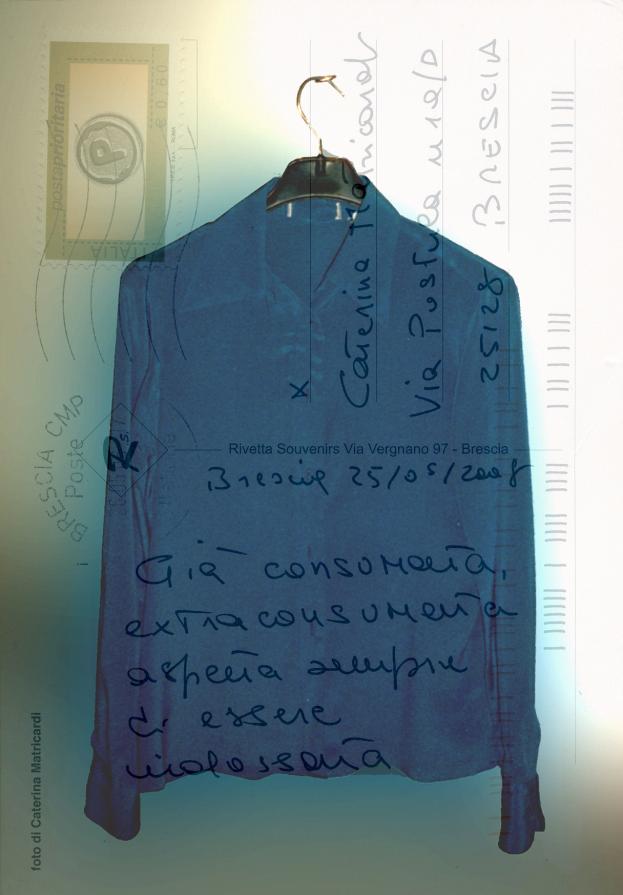 postaprioritaria
€ 0,60
ITALIA
BRESCIA CMP
Poste
Caterina Matricardi
Via Pustura
BRESCIA
25128
x
Rivetta Souvenirs Via Vergnano 97 - Brescia
Brescia 25/05/2008
Già consumata,
extraconsumata
aspetta sempre
di essere
indossata
foto di Caterina Matricardi